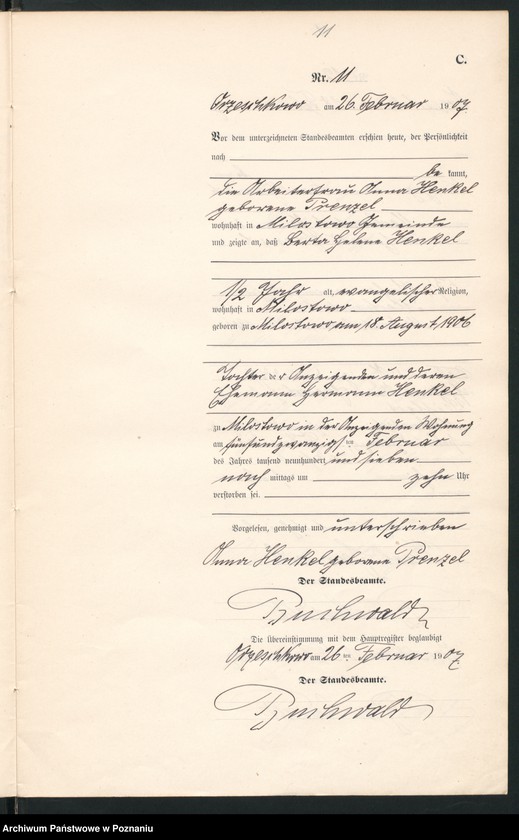 11
C.
Nr. 11
Orzeschkowo am 26. Februar 1907.
Vor dem unterzeichneten Standesbeamten erschien heute, der Persönlichkeit
nach
be kannt,
die Arbeiterfrau Anna Henkel
geborene Prenzel
wohnhaft in Milostowo Gemeinde
und zeigte an, daß Berta Helene Henkel
1/2 Jahr alt, evangelischer Religion,
wohnhaft in Milostowo
geboren zu Milostowo am 18. August 1906
Tochter der Anzeigenden und deren
Ehemann Hermann Henkel
zu Milostowo in der Anzeigenden Wohnung
am fünfundzwanzigsten Februar
des Jahres tausend neunhundert und sieben
nach mittags um zehn Uhr
verstorben sei.
Vorgelesen, genehmigt und unterschrieben
Anna Henkel geborene Prenzel
Der Standesbeamte.
Buchwald
Die Übereinstimmung mit dem Hauptregister beglaubigt
Orzeschkowo am 26 ten Februar 1907.
Der Standesbeamte.
Buchwald
Archiwum Państwowe w Poznaniu